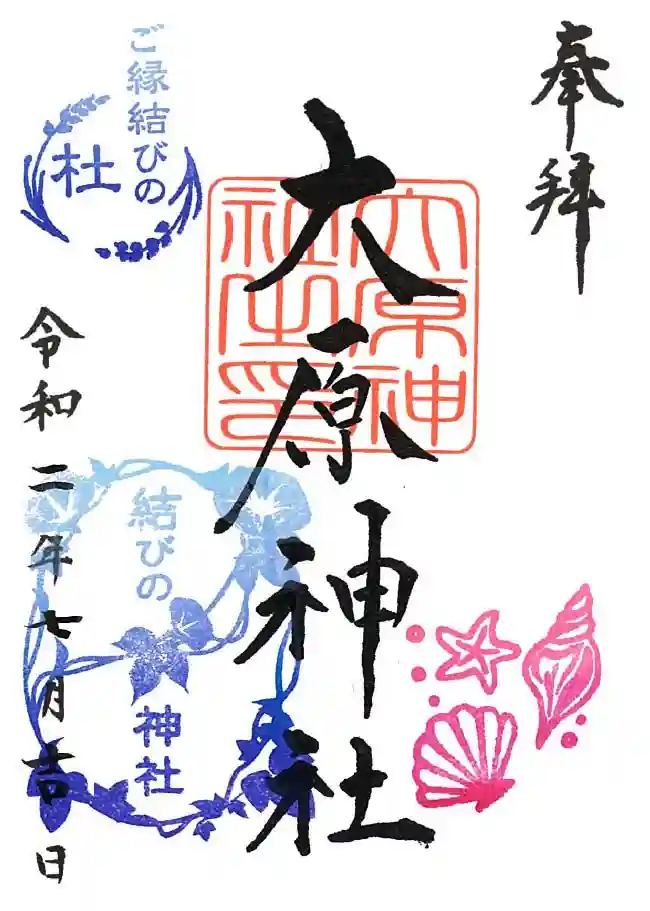 奉拝
大原神社
大原神
社之印
ご縁結びの
杜
結びの
神社
令和二年七月吉日